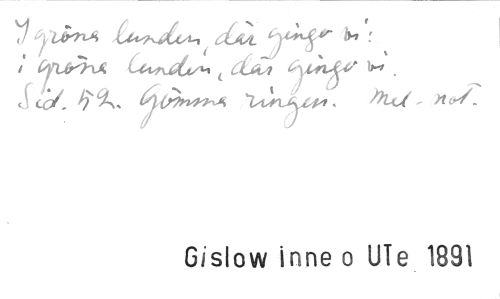 I gröna lunden, där gingo vi:
i gröna lunden, där gingo vi.
Sid. 52. Gömma ringen. Mel. not.
Gislow inne o UTe 1891